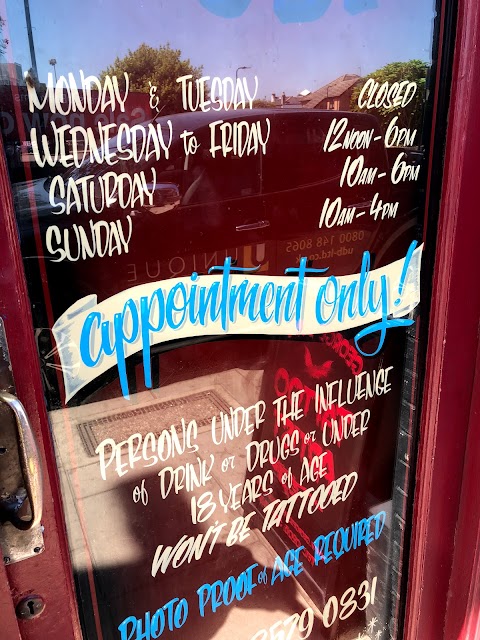 MONDAY & TUESDAY CLOSED
WEDNESDAY to FRIDAY 12 NOON - 6PM
SATURDAY 10AM - 6PM
SUNDAY 10AM - 4PM
0800 148 8065
udb-ltd.co.uk
UNIQUE
appointment only!
PERSONS UNDER THE INFLUENCE
of DRINK or DRUGS or UNDER
18 YEARS of AGE
WON'T BE TATTOOED
PHOTO PROOF of AGE REQUIRED
8529 0831